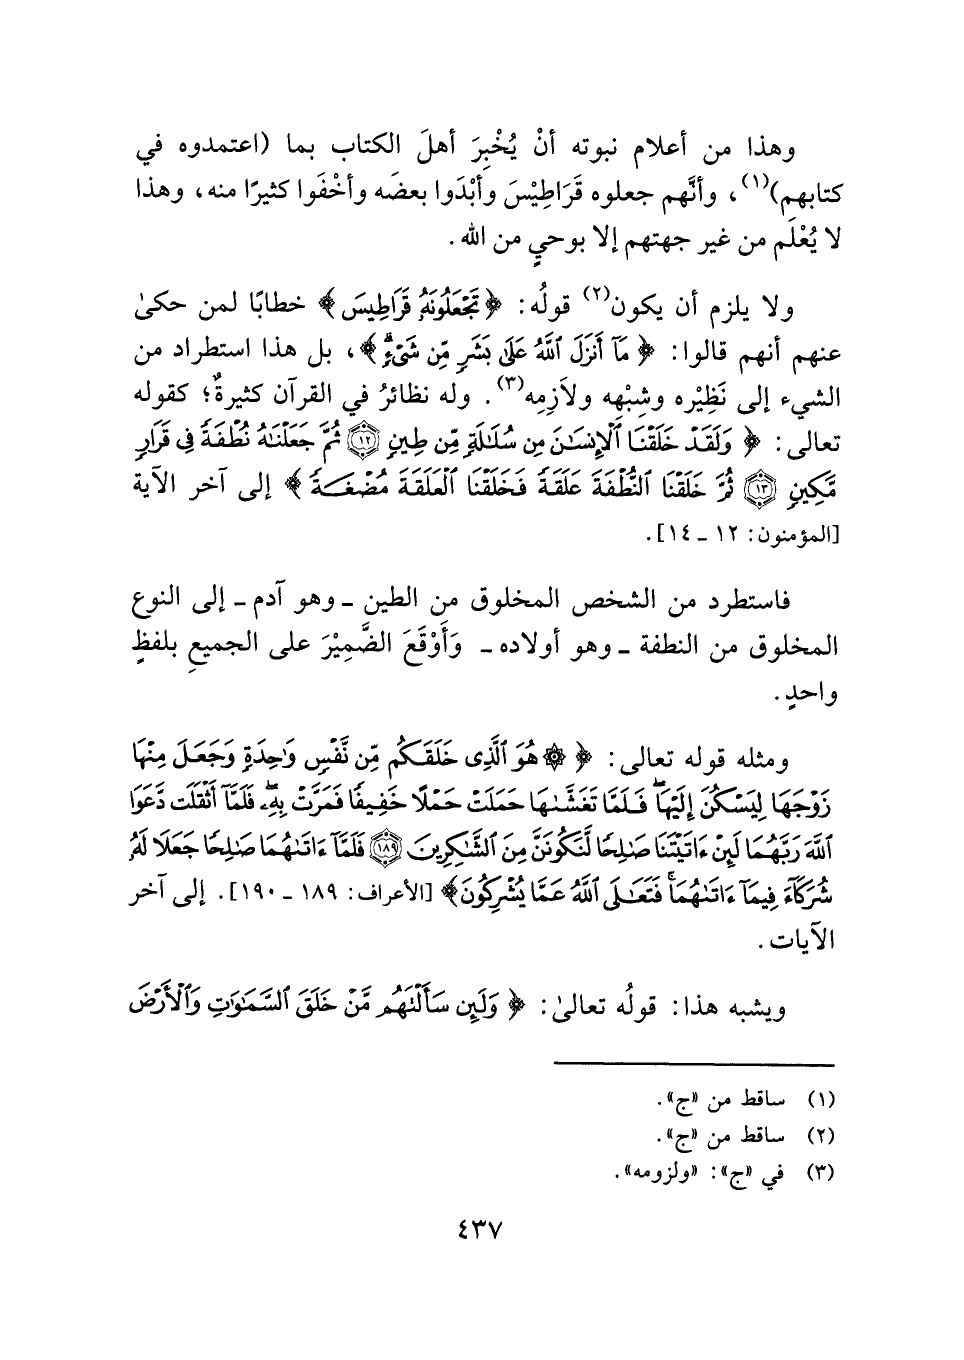 وهذا من أعلام نبوته أنْ يُخْبِرَ أهلَ الكتاب بما (اعتمدوه في
كتابهم)(١)، وأنَّهم جعلوه قَرَاطِيْسَ وأبْدَوا بعضَه وأخْفَوا كثيرًا منه، وهذا
لا يُعْلَم من غير جهتهم إلا بوحيٍ من الله.
ولا يلزم أن يكون(٢) قولُه: ﴿تَجْعَلُونَهُۥ قَرَاطِيسَ﴾ خطابًا لمن حكىٰ
عنهم أنهم قالوا: ﴿مَآ أَنزَلَ ٱللَّهُ عَلَىٰ بَشَرٖ مِّن شَيۡءٖۗ﴾، بل هذا استطراد من
الشيء إلى نَظِيْره وشِبْهِه ولاَزِمِه(٣). وله نظائرُ في القرآن كثيرةٌ؛ كقوله
تعالى: ﴿وَلَقَدۡ خَلَقۡنَا ٱلۡإِنسَٰنَ مِن سُلَٰلَةٖ مِّن طِينٖ ۝١٢ ثُمَّ جَعَلۡنَٰهُ نُطۡفَةٗ فِي قَرَارٖ
مَّكِينٖ ۝١٣ ثُمَّ خَلَقۡنَا ٱلنُّطۡفَةَ عَلَقَةٗ فَخَلَقۡنَا ٱلۡعَلَقَةَ مُضۡغَةٗ﴾ إلى آخر الآية
[المؤمنون: ١٢ ـ ١٤].
فاستطرد من الشخص المخلوق من الطين ـ وهو آدم ـ إلى النوع
المخلوق من النطفة ـ وهو أولاده ـ وَأَوْقَعَ الضَّمِيْرَ على الجميعِ بلفظٍ
واحدٍ.
ومثله قوله تعالى: ﴿۞هُوَ ٱلَّذِي خَلَقَكُم مِّن نَّفۡسٖ وَٰحِدَةٖ وَجَعَلَ مِنۡهَا
زَوۡجَهَا لِيَسۡكُنَ إِلَيۡهَاۖ فَلَمَّا تَغَشَّىٰهَا حَمَلَتۡ حَمۡلًا خَفِيفٗا فَمَرَّتۡ بِهِۦۖ فَلَمَّآ أَثۡقَلَت دَّعَوَا
ٱللَّهَ رَبَّهُمَا لَئِنۡ ءَاتَيۡتَنَا صَٰلِحٗا لَّنَكُونَنَّ مِنَ ٱلشَّٰكِرِينَ ۝١٨٩ فَلَمَّآ ءَاتَىٰهُمَا صَٰلِحٗا جَعَلَا لَهُۥ
شُرَكَآءَ فِيمَآ ءَاتَىٰهُمَاۚ فَتَعَٰلَى ٱللَّهُ عَمَّا يُشۡرِكُونَ﴾ [الأعراف: ١٨٩ ـ ١٩٠]. إلى آخر
الآيات.
ويشبه هذا: قولُه تعالىٰ: ﴿وَلَئِن سَأَلۡتَهُم مَّنۡ خَلَقَ ٱلسَّمَٰوَٰتِ وَٱلۡأَرۡضَ
(١) ساقط من «ج».
(٢) ساقط من «ج».
(٣) في «ج»: «ولزومه».
٤٣٧